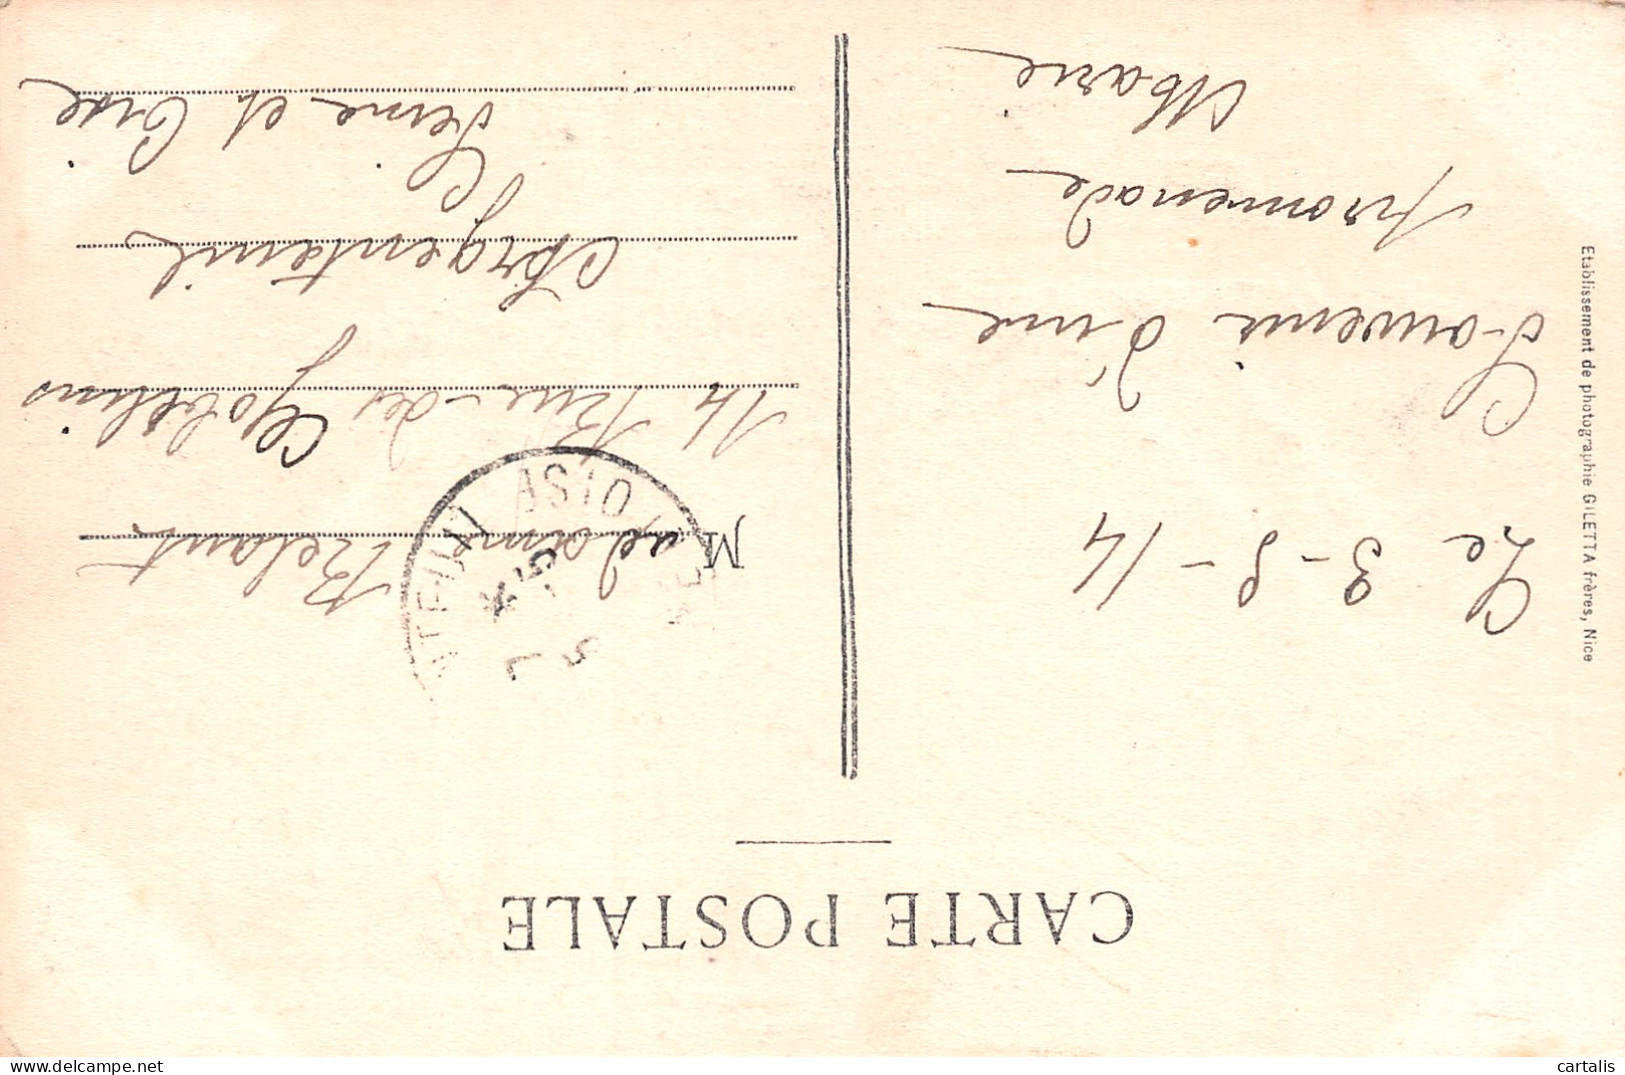 CARTE POSTALE
Le 3-8-14
Souvenir d'une
promenade
Marie
Madame
14 Rue des Gobelins
Argenteuil
Seine et Oise
Etablissement de photographie GILETTA frères, Nice
cartalis